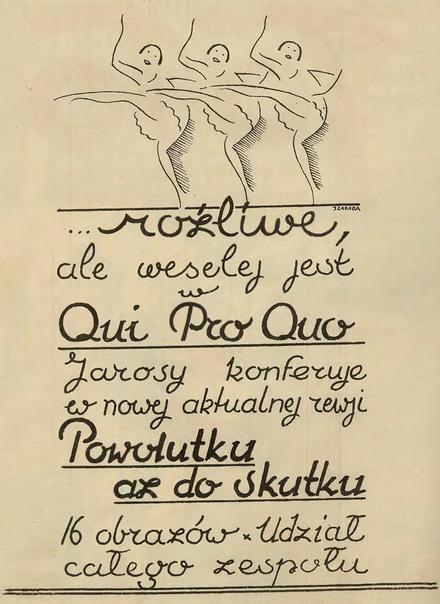 J ZARUBA
...możliwe,
ale weselej jest
w
Qui Pro Quo
Jarosy konferuje
w nowej aktualnej rewji
Powolutku
aż do skutku
16 obrazów × Udział
całego zespołu